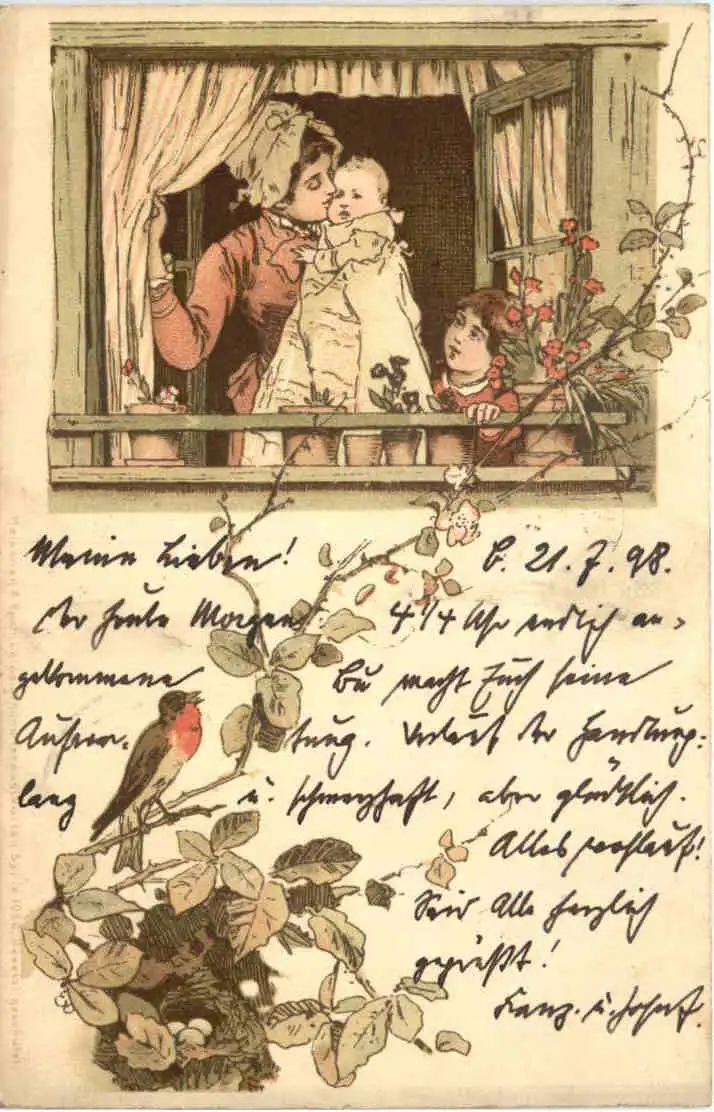 Meine Lieben! B. 21. 7. 98.
Der heute Morgen 4 1/4 Uhr endlich an-
gekommene Bu macht Euch seine
Aufwartung. Verlauf der Handlung:
lang u. schmerzhaft, aber glücklich.
Alles wohlauf!
Seid Alle herzlich
gegrüßt!
u.